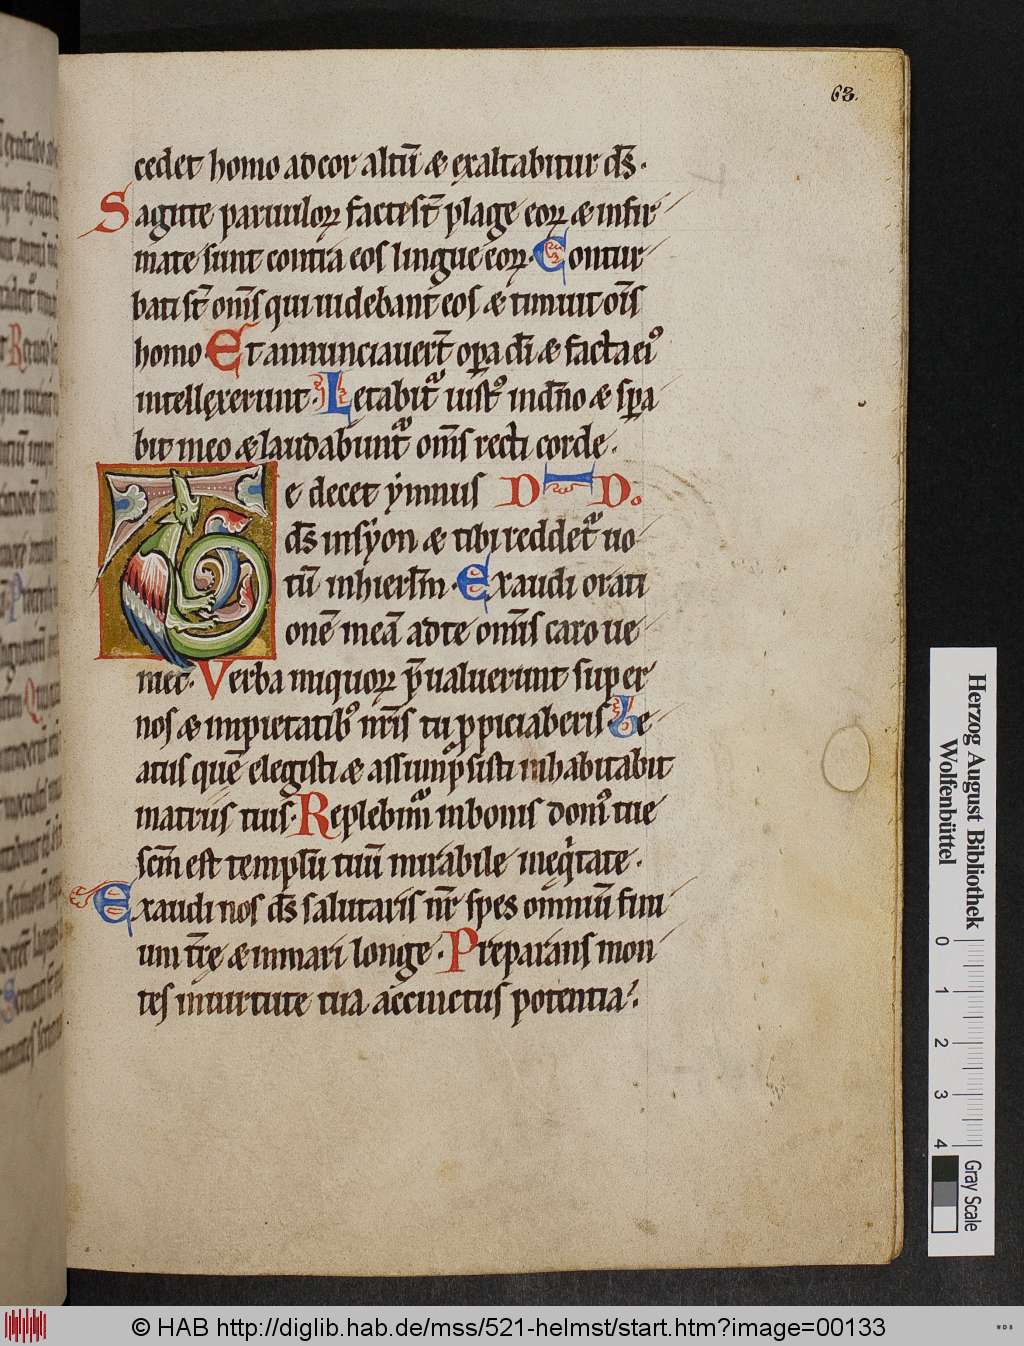 63.
cedet homo ad cor altū & exaltabitur d̄s.
Sagitte paruuloꝝ facte sт̄ plage eoꝝ & infir
mate sunt contra eos lingue eoꝝ. Contur
bati st̄ om̄s qui uidebant eos & timuit om̄is
homo. Et annunciauert̄ oꝑa dī & facta eiꝰ
intellexerunt. Letabitᷣ iustꝰ in dn̄o & sꝑa
bit in eo & laudabuntᷣ om̄s recti corde.
Te decet ẏmnus D̄ D.
d̄s in sẏon & tibi reddetᷣ uo
tū in hierl̄m. Exaudi orati
onē meā ad te omnis caro ue
niet. Verba iniquoꝝ p̄ualuerunt super
nos & impietatibꝰ nr̄is tu ꝓpiciaberis. Be
atus quē elegisti & assumpsisti inhabitabit
in atriis tuis. Replebimᷣ in bonis domꝰ tue
sc̄m est templū tuū mirabile in eq̇tate.
Exaudi nos d̄s salutaris nr̄ spes omniū fini
um tr̄e & in mari longe. Preparans mon
tes in uirtute tua accinctus potentia.
Herzog August Bibliothek
Wolfenbüttel
0 1 2 3 4
Gray Scale
© HAB http://diglib.hab.de/mss/521-helmst/start.htm?image=00133